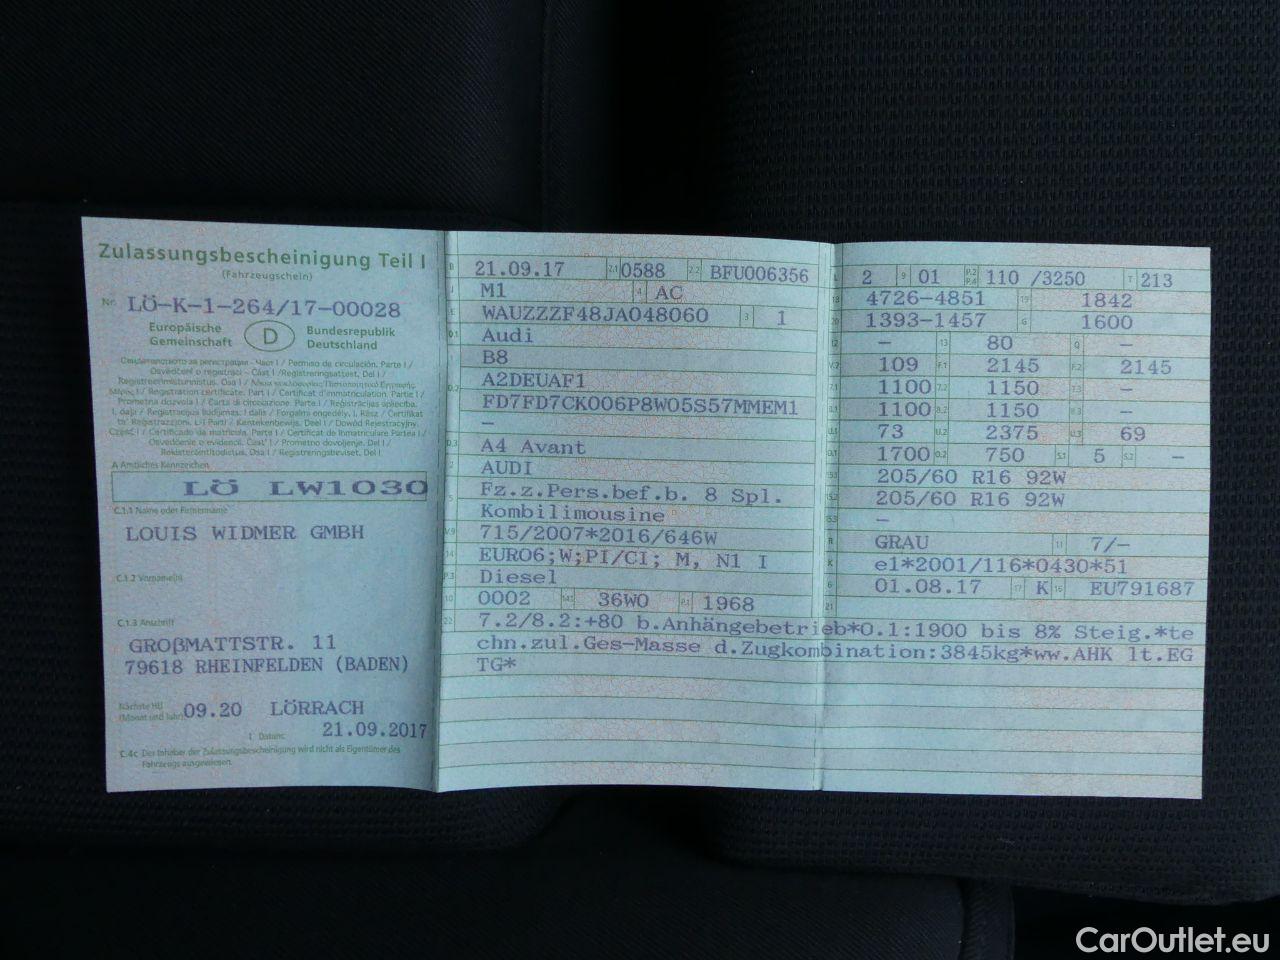 Zulassungsbescheinigung Teil I
(Fahrzeugschein)
Nr. LÖ-K-1-264/17-00028
Europäische Gemeinschaft D Bundesrepublik Deutschland
A Amtliches Kennzeichen
LÖ LW1030
C.1.1 Name oder Firmenname
LOUIS WIDMER GMBH
C.1.2 Vorname(n)
C.1.3 Anschrift
GROßMATTSTR. 11
79618 RHEINFELDEN (BADEN)
Nächste HU
(Monat und Jahr) 09.20 LÖRRACH
I Datum: 21.09.2017
C.4c Der Inhaber der Zulassungsbescheinigung wird nicht als Eigentümer des
Fahrzeugs ausgewiesen.
B 21.09.17 2.1 0588 2.2 BFU006356
J M1 4 AC
E WAUZZZF48JA048060 3 1
D.1 Audi
B8
D.2 A2DEUAF1
FD7FD7CK006P8W05S57MMEM1
-
D.3 A4 Avant
2 AUDI
5 Fz.z.Pers.bef.b. 8 Spl.
Kombilimousine
V.9 715/2007*2016/646W
14 EURO6;W;PI/CI; M, N1 I
P.3 Diesel
10 0002 14.1 36W0 P.1 1968
L 2 9 01 P.2 P.4 110 /3250 T 213
18 4726-4851 19 1842
20 1393-1457 G 1600
12 - 13 80 Q -
V.7 109 F.1 2145 F.2 2145
7.1 1100 7.2 1150 7.3 -
8.1 1100 8.2 1150 8.3 -
U.1 73 U.2 2375 U.3 69
O.1 1700 O.2 750 S.1 5 S.2 -
15.1 205/60 R16 92W
15.2 205/60 R16 92W
15.3 -
R GRAU 11 7/-
K e1*2001/116*0430*51
6 01.08.17 17 K 16 EU791687
21
22 7.2/8.2:+80 b.Anhängebetrieb*O.1:1900 bis 8% Steig.*te
chn.zul.Ges-Masse d.Zugkombination:3845kg*ww.AHK lt.EG
TG*
CarOutlet.eu